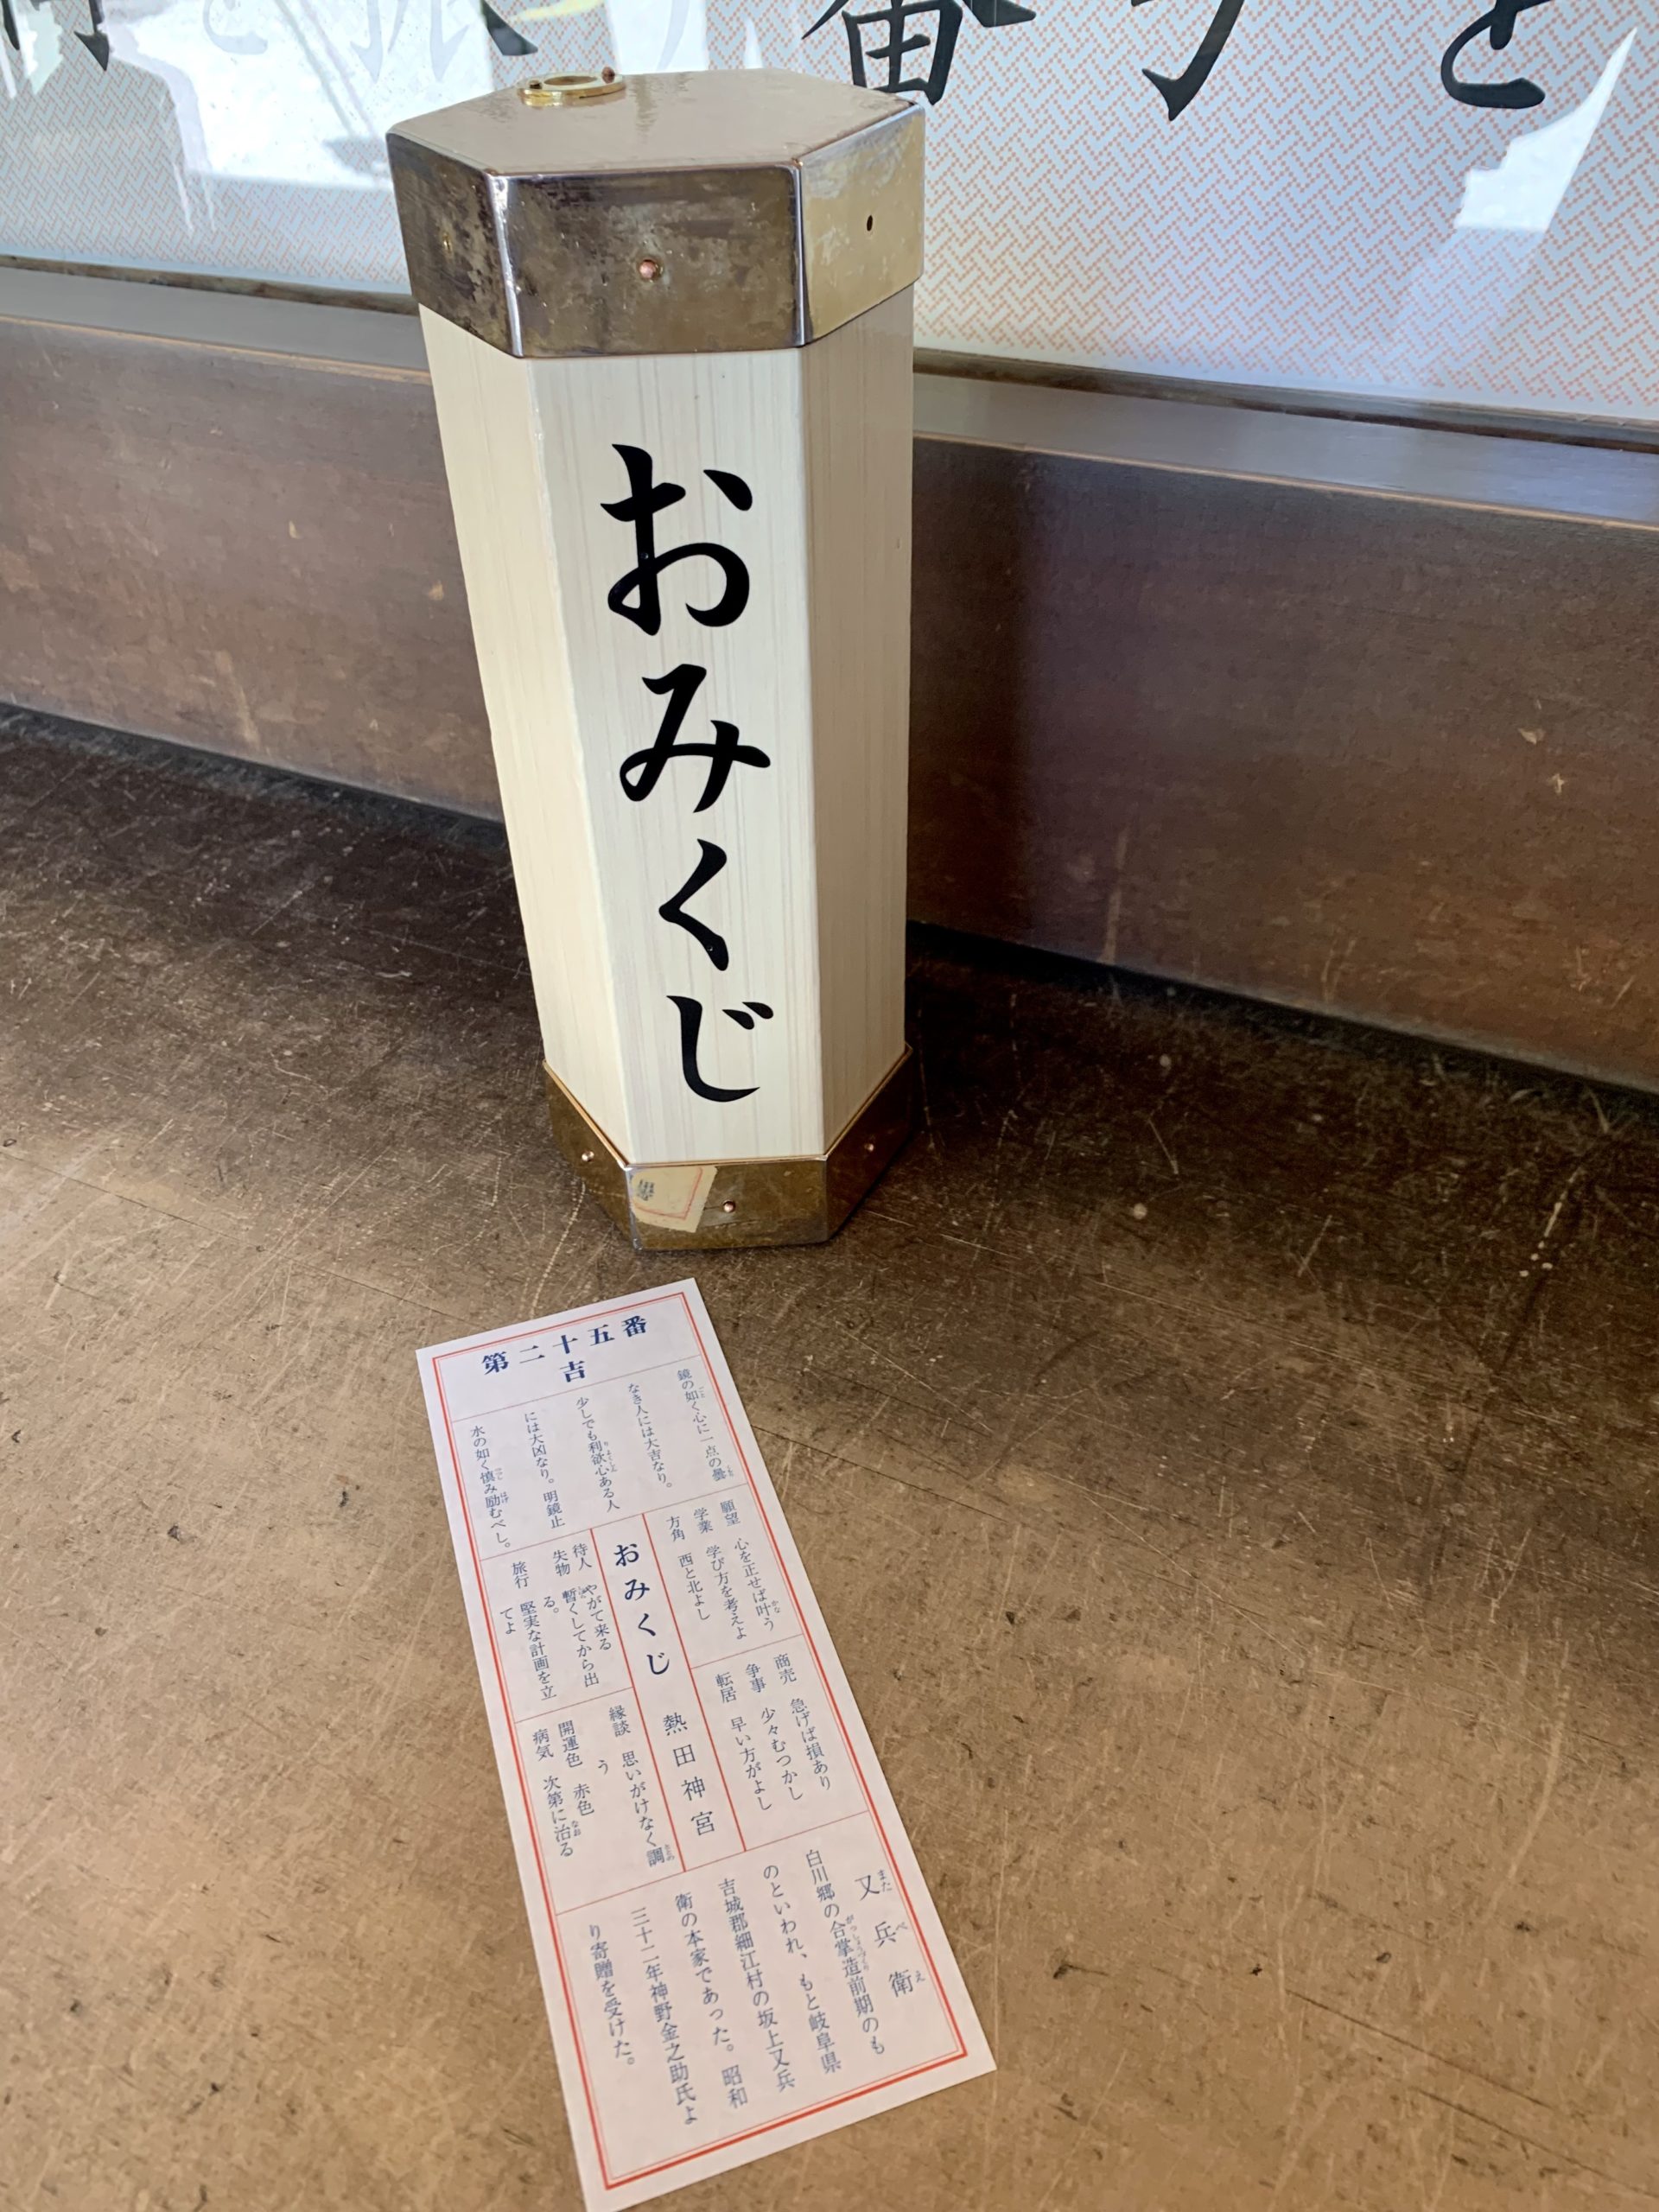 番号を
おみくじ
第二十五番
吉
鏡の如く心に一点の曇
なき人には大吉なり。
少しでも利欲心ある人
には大凶なり。明鏡止
水の如く慎み励むべし。
願望 心を正せば叶う
学業 学び方を考えよ
方角 西と北よし
商売 急げば損あり
争事 少々むつかし
転居 早い方がよし
おみくじ 熱田神宮
待人 やがて来る
失物 暫くしてから出
る。
旅行 堅実な計画を立
てよ
縁談 思いがけなく調
う
開運色 赤色
病気 次第に治る
又兵衛
白川郷の合掌造前期のも
のといわれ、もと岐阜県
吉城郡細江村の坂上又兵
衛の本家であった。昭和
三十二年神野金之助氏よ
り寄贈を受けた。